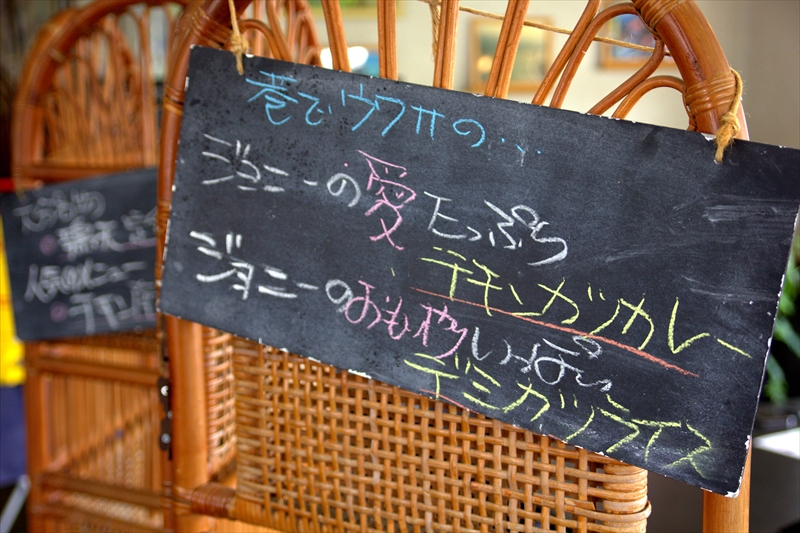 巷でウワサの…
ジョニーの愛たっぷり
チキンカツカレー
ジョニーのおもいやりいっぱい
デミカツライス
人気のメニュー